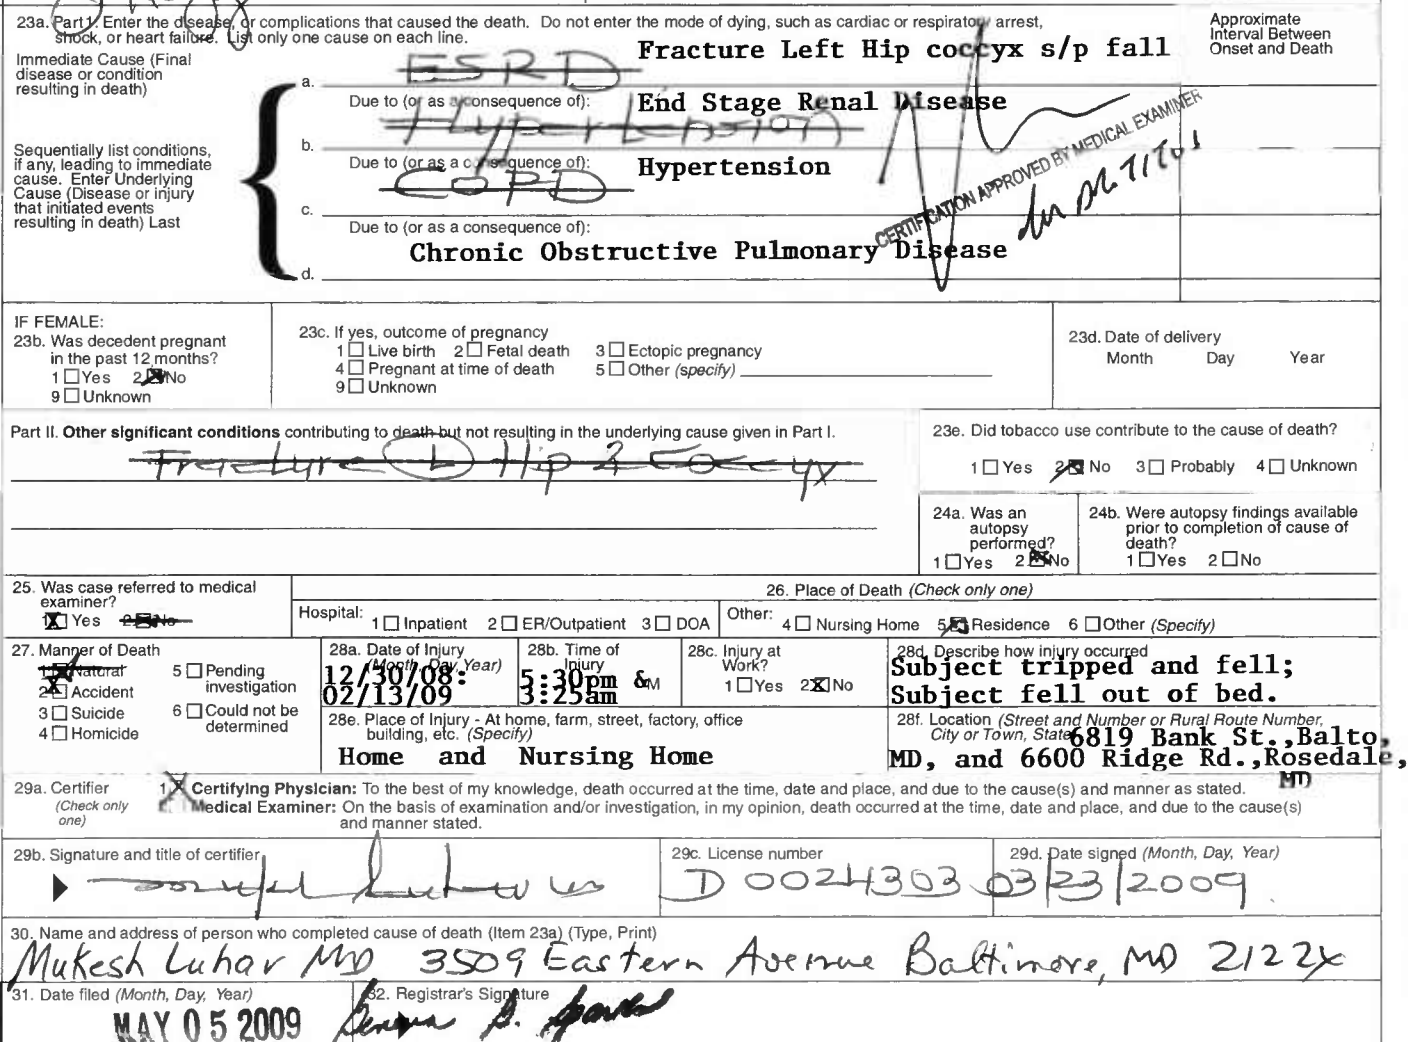 23a. Part I. Enter the disease, or complications that caused the death. Do not enter the mode of dying, such as cardiac or respiratory arrest,
shock, or heart failure. List only one cause on each line.
Approximate
Interval Between
Onset and Death
Immediate Cause (Final
disease or condition
resulting in death)
a. ESRD Fracture Left Hip coccyx s/p fall
Due to (or as a consequence of): End Stage Renal Disease
b. Hypertension
Sequentially list conditions,
if any, leading to immediate
cause. Enter Underlying
Cause (Disease or injury
that initiated events
resulting in death) Last
Due to (or as a consequence of): Hypertension
c. COPD
Due to (or as a consequence of):
d. Chronic Obstructive Pulmonary Disease
CERTIFICATION APPROVED BY MEDICAL EXAMINER
TITUS
IF FEMALE:
23b. Was decedent pregnant
in the past 12 months?
1 Yes 2 No
9 Unknown
23c. If yes, outcome of pregnancy
1 Live birth 2 Fetal death 3 Ectopic pregnancy
4 Pregnant at time of death 5 Other (specify)
9 Unknown
23d. Date of delivery
Month Day Year
Part II. Other significant conditions contributing to death but not resulting in the underlying cause given in Part I.
Fracture L Hip & Coccyx
23e. Did tobacco use contribute to the cause of death?
1 Yes 2 No 3 Probably 4 Unknown
24a. Was an
autopsy
performed?
1 Yes 2 No
24b. Were autopsy findings available
prior to completion of cause of
death?
1 Yes 2 No
25. Was case referred to medical
examiner?
1 Yes 2 No
26. Place of Death (Check only one)
Hospital: 1 Inpatient 2 ER/Outpatient 3 DOA Other: 4 Nursing Home 5 Residence 6 Other (Specify)
27. Manner of Death
1 Natural 5 Pending
investigation
2 Accident
3 Suicide 6 Could not be
determined
4 Homicide
28a. Date of Injury
(Month, Day, Year)
12/30/08:
02/13/09
28b. Time of
Injury
5:30pm & M
3:25am
28c. Injury at
Work?
1 Yes 2 No
28d. Describe how injury occurred
Subject tripped and fell;
Subject fell out of bed.
28e. Place of Injury - At home, farm, street, factory, office
building, etc. (Specify)
Home and Nursing Home
28f. Location (Street and Number or Rural Route Number,
City or Town, State 6819 Bank St.,Balto,
MD, and 6600 Ridge Rd.,Rosedale,
MD
29a. Certifier
(Check only
one)
1 Certifying Physician: To the best of my knowledge, death occurred at the time, date and place, and due to the cause(s) and manner as stated.
Medical Examiner: On the basis of examination and/or investigation, in my opinion, death occurred at the time, date and place, and due to the cause(s)
and manner stated.
29b. Signature and title of certifier
29c. License number
D 0024303
29d. Date signed (Month, Day, Year)
03/23/2009
30. Name and address of person who completed cause of death (Item 23a) (Type, Print)
Mukesh Luhar MD 3509 Eastern Avenue Baltimore, MD 2122
31. Date filed (Month, Day, Year)
MAY 05 2009
32. Registrar's Signature